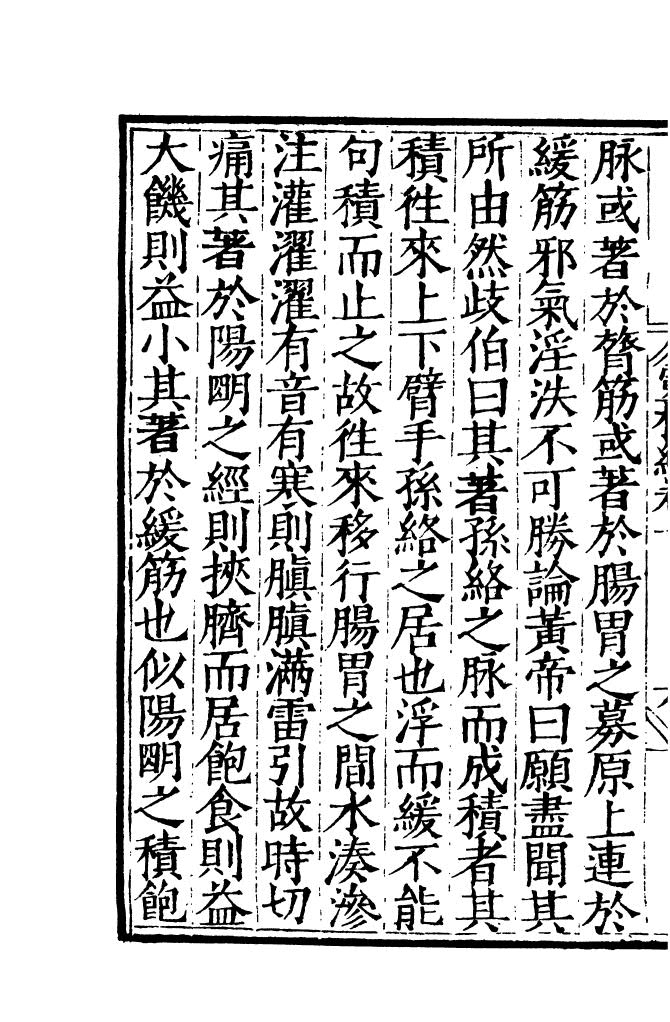 脉或著於膂筋或著於腸胃之募原上連於
緩筋邪氣淫泆不可勝論黃帝曰願盡聞其
所由然歧伯曰其著孫絡之脉而成積者其
積徃來上下臂手孫絡之居也浮而緩不能
句積而止之故徃來移行腸胃之間水湊滲
注灌濯濯有音有寒則䐜䐜滿雷引故時切
痛其著於陽明之經則挾臍而居飽食則益
大饑則益小其著於緩筋也似陽明之積飽